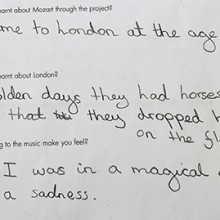 earnt about Mozart through the project?
me to London at the age
earnt about London?
olden days they had horses
that they dropped
on the fl
g to the music make you feel?
I was in a magical
a sadness.